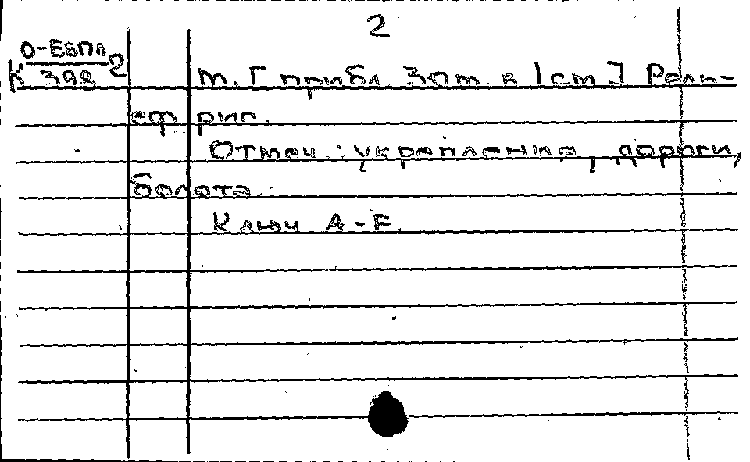 2
О-Евпл 2
К 398
т. [прибл. 30 т. в 1 см.] Рель-
еф рис.
Отмеч.: укрепления, дороги,
болота.
Ключ А-F.